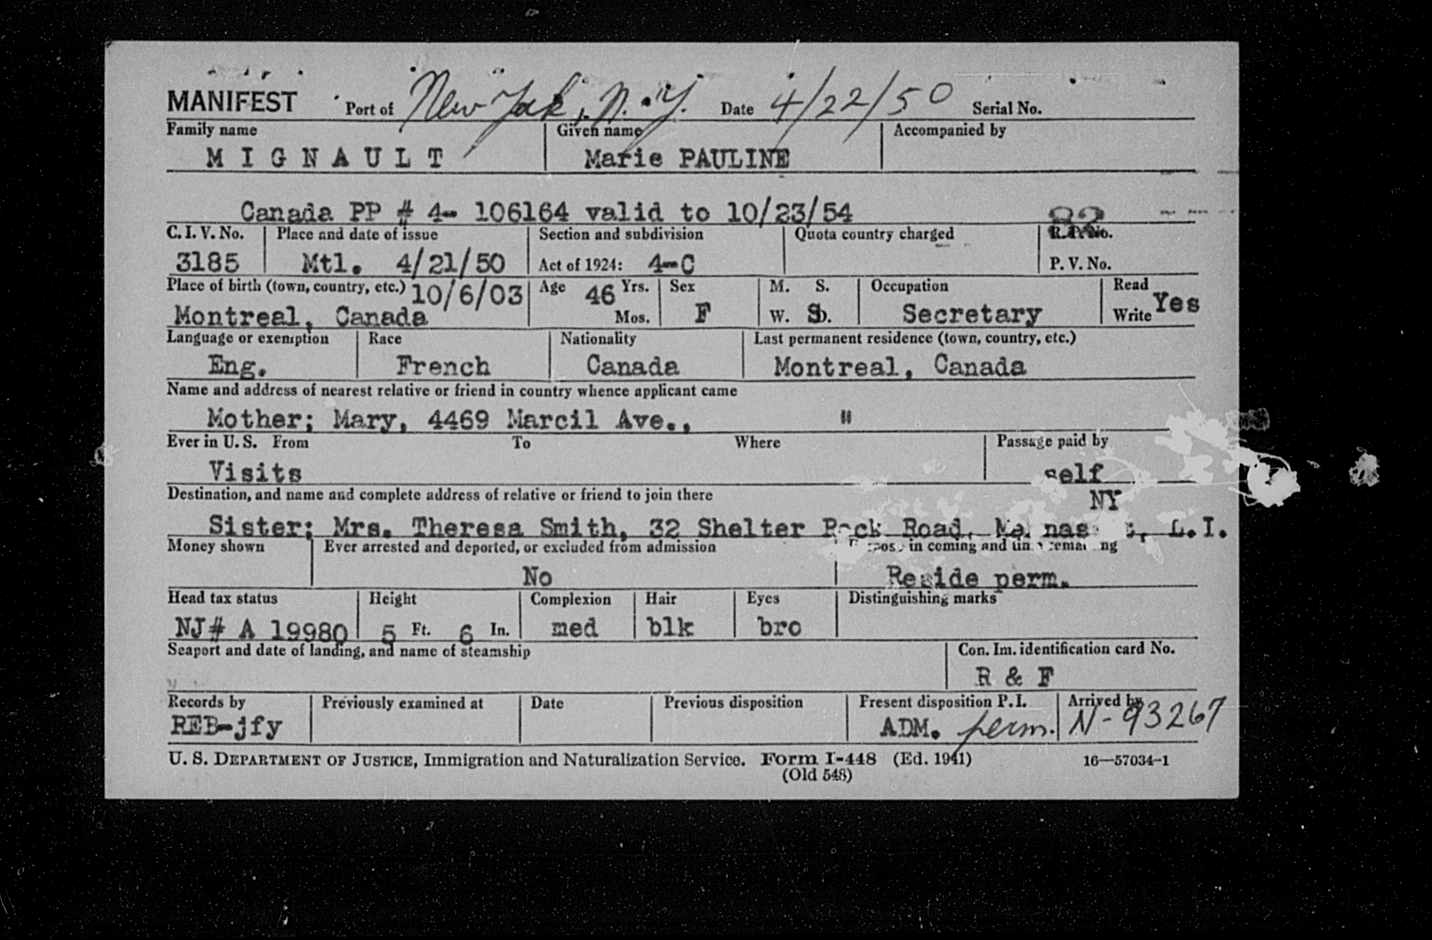 MANIFEST Port of New York, N.Y. Date 4/22/50 Serial No.
Family name Given name Accompanied by
MIGNAULT Marie PAULINE
Canada PP # 4- 106164 valid to 10/23/54
C. I. V. No. Place and date of issue Section and subdivision Quota country charged
3185 Mtl. 4/21/50 Act of 1924: 4-C P. V. No.
Place of birth (town, country, etc.) 10/6/03 Age 46 Yrs. Sex M. S. Occupation Read Yes
Montreal, Canada Mos. F W. Secretary Write
Language or exemption Race Nationality Last permanent residence (town, country, etc.)
Eng. French Canada Montreal, Canada
Name and address of nearest relative or friend in country whence applicant came
Mother; Mary, 4469 Marcil Ave., "
Ever in U. S. From To Where Passage paid by
Visits self
Destination, and name and complete address of relative or friend to join there NY
Sister; Mrs. Theresa Smith, 32 Shelter Rock Road, L.I.
Money shown Ever arrested and deported, or excluded from admission in coming and
No Reside perm.
Head tax status Height Complexion Hair Eyes Distinguishing marks
NJ# A 19980 5 Ft. 6 In. med blk bro
Seaport and date of landing, and name of steamship Con. Im. identification card No.
R & F
Records by Previously examined at Date Previous disposition Present disposition P. I. Arrived by
REB-jfy ADM. perm. N-93267
U. S. DEPARTMENT OF JUSTICE, Immigration and Naturalization Service. Form I-448 (Ed. 1941) 16—57034-1
(Old 548)